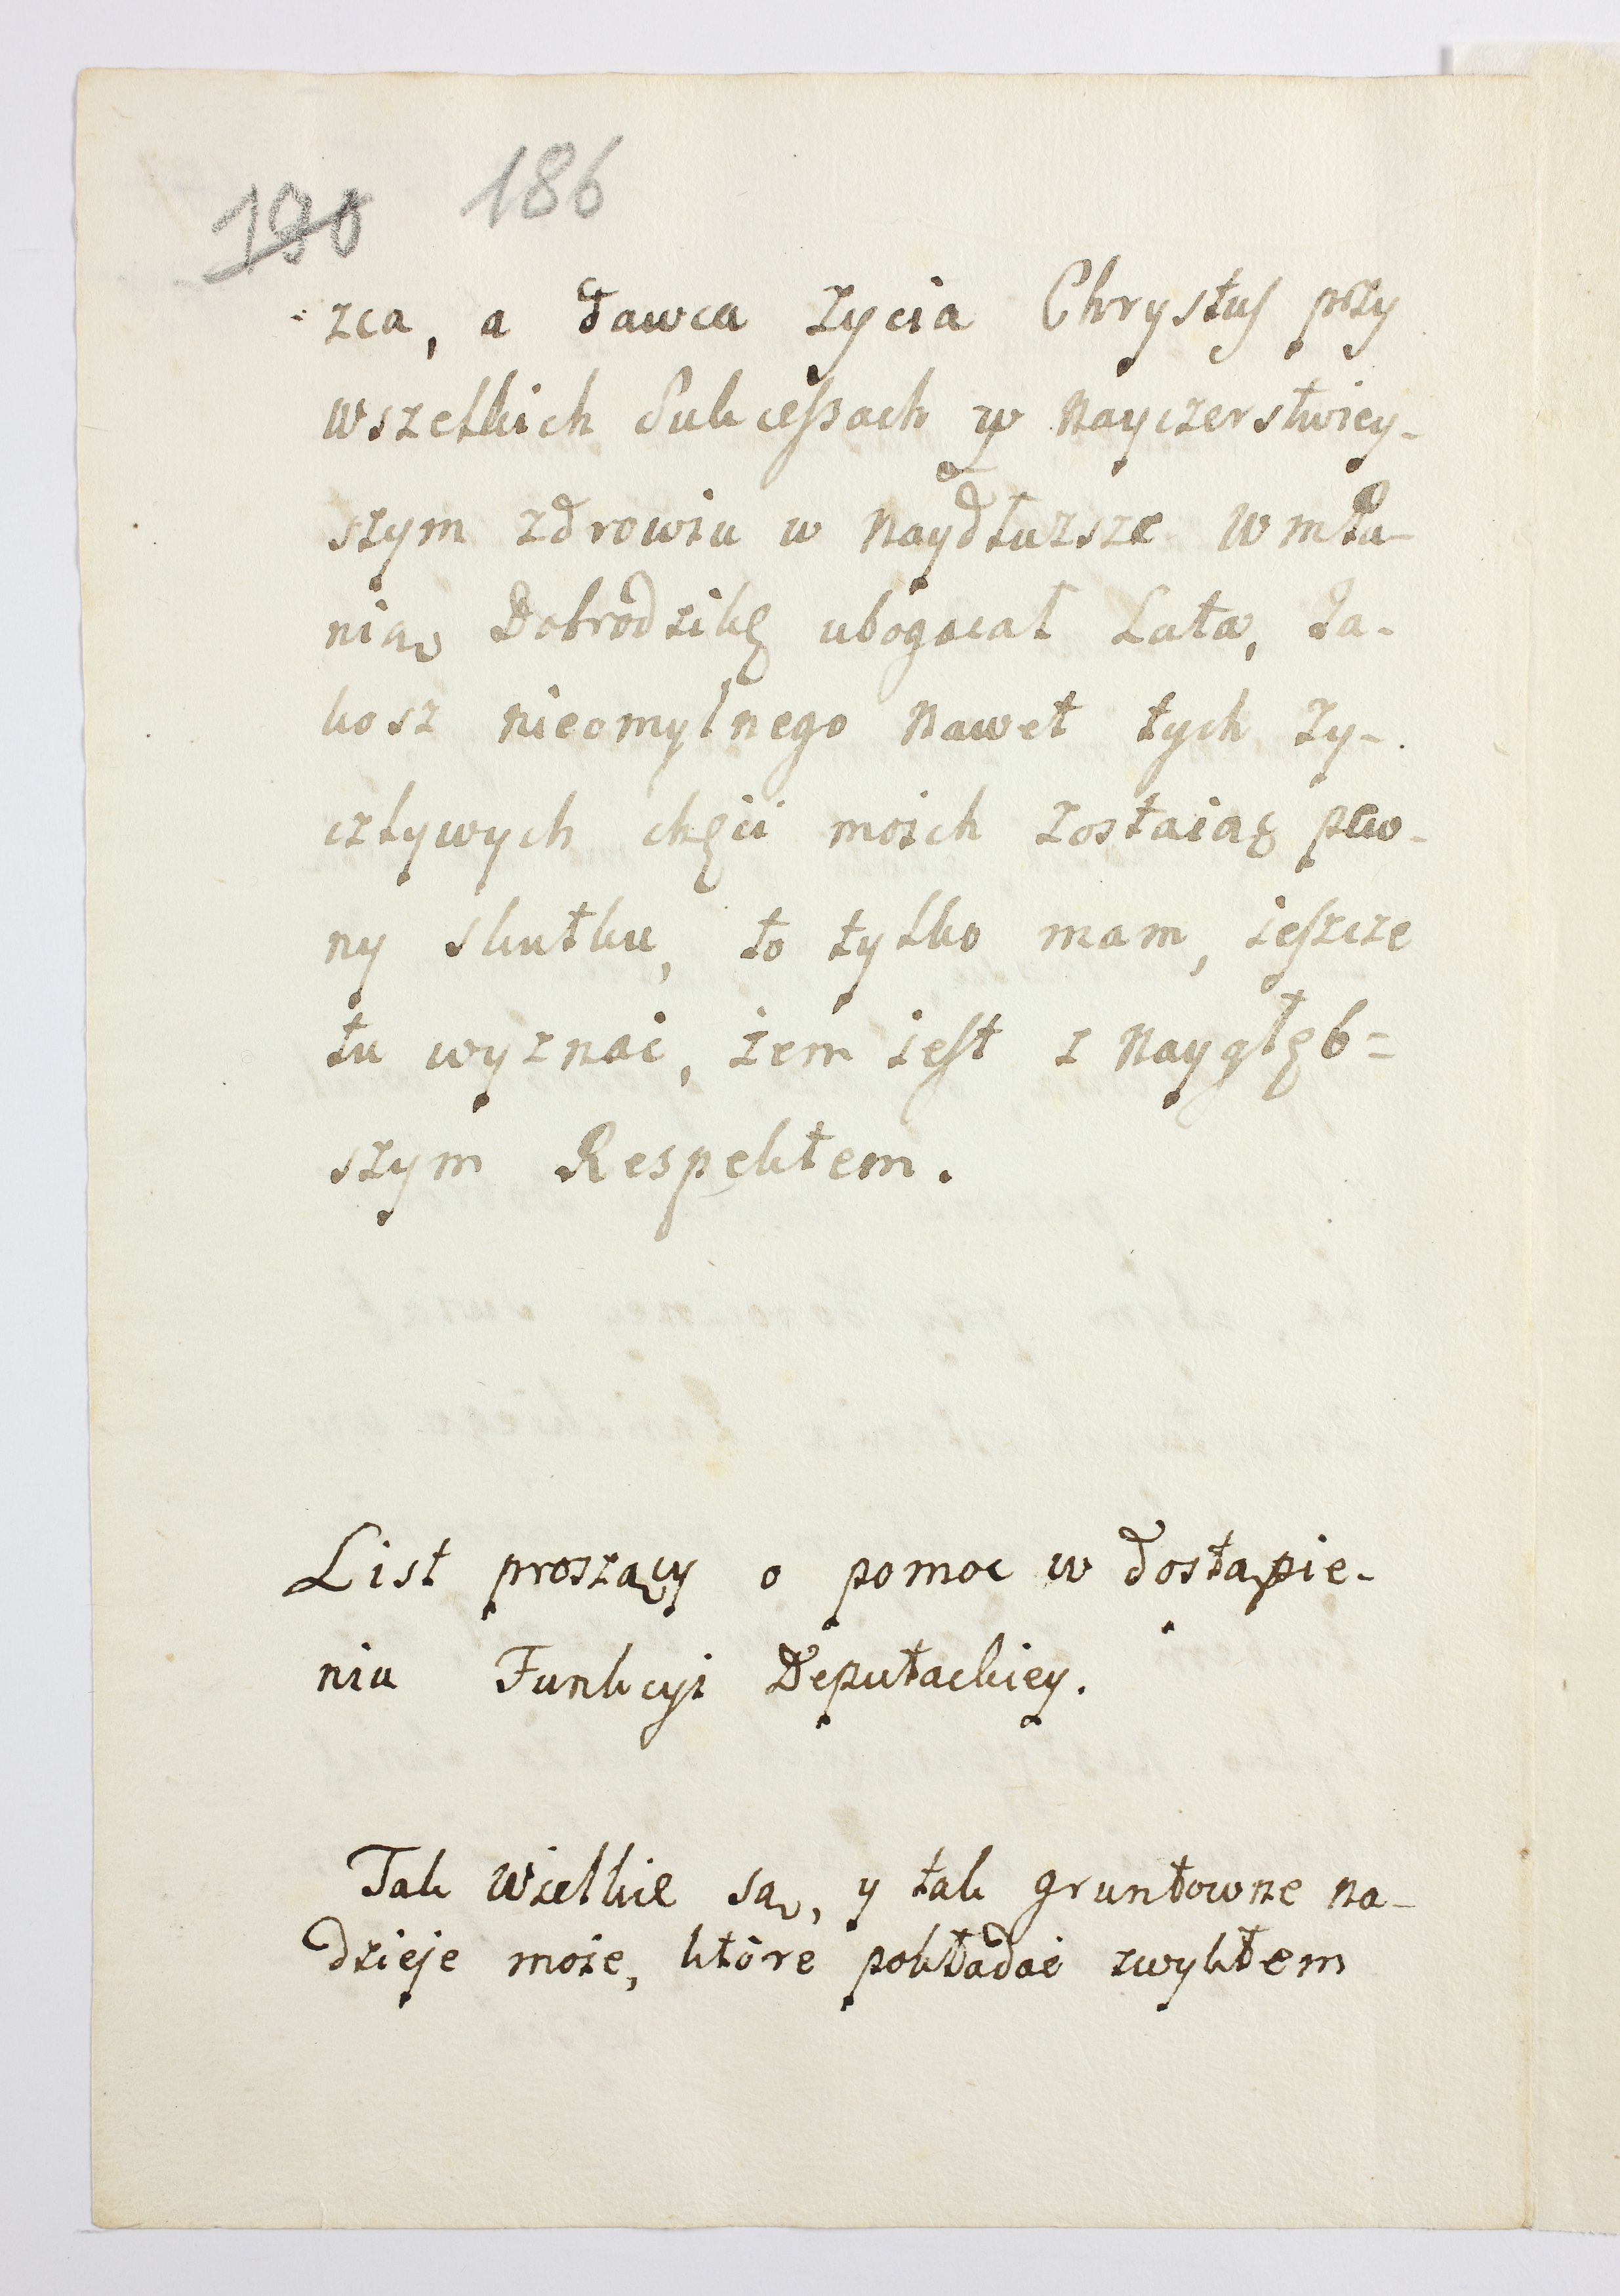 190 186
zca, a dawca życia Chrystus przy
wszelkich Sukcessach w nayczerstwiey-
szym zdrowiu w naydłuzsze Wmła-
nią Dobrodzikę ubogacał Lata, Ia-
kosz nieomylnego nawet tych ży-
czlywych chęci moich zostaiąc pew-
ny skutku, to tylko mam, ieszcze
tu wyznać, żem iest z naygłęb=
szym Respektem.
List proszący o pomoc w dostąpie-
niu Funkcyi Deputackiey.
Tak Wielkie są, y tak gruntowne na-
dzieje moie, które pokładać zwykłem